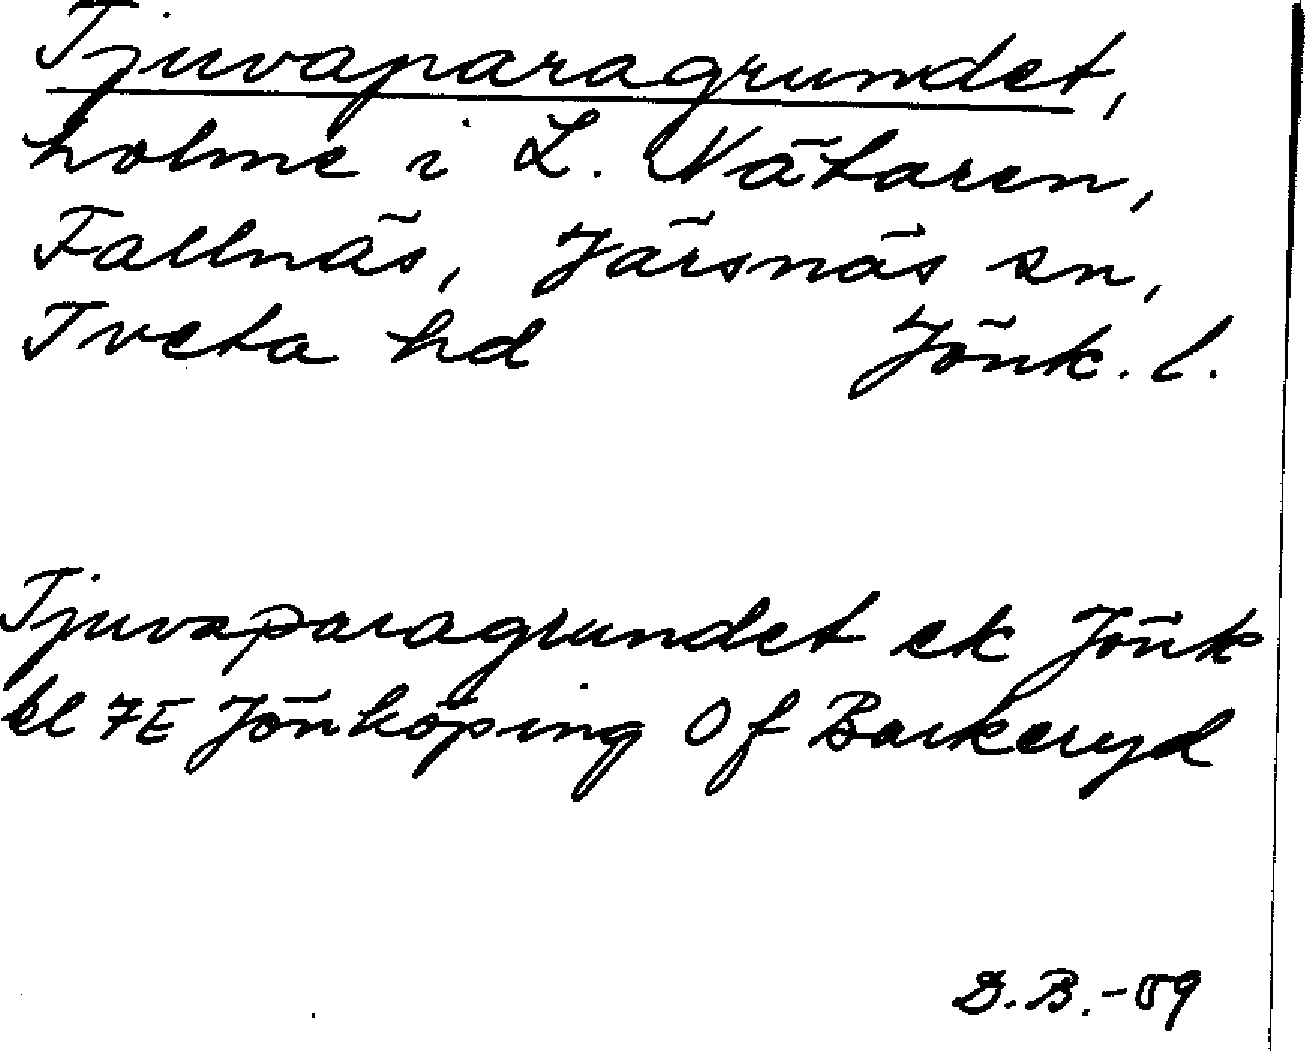 Tjuvaparagrundet,
holme i L. Nätaren,
Fallnäs, Järsnäs sn,
Tveta hd Jönk. l.
Tjuvaparagrundet ek Jönk
bl 7E Jönköping 0f Barkeryd
D.B.-59